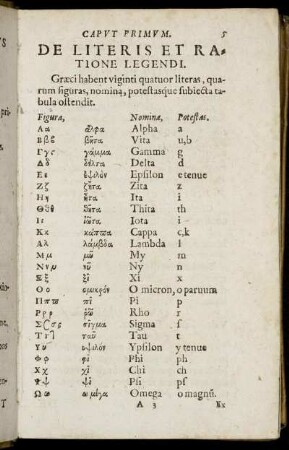 CAPVT PRIMVM. 5
DE LITERIS ET RA-
TIONE LEGENDI.
Græci habent viginti quatuor literas, qua-
rum figuras, nomina, potestasque subiecta ta-
bula ostendit.
Figura, Nomina, Potestas.
Αα ἄλφα Alpha a
Ββϐ βῆτα Vita u,b
Γγς γάμμα Gamma g
Δδ δέλτα Delta d
Εε ἐψιλόν Epsilon e tenue
Ζζ ζῆτα Zita z
Ηη ἦτα Ita i
Θϑθ θῆτα Thita th
Ιι ἰῶτα Iota i
Κκ κάππα Cappa c,k
Αλ λάμβδα Lambda l
Μμ μῦ My m
Ννν νῦ Ny n
Ξξ ξῖ Xi x
Οο ομικρόν O micron, o paruum
Ππϖ πῖ Pi p
Ρρρ ῥῶ Rho r
ΣζσϚ σίγμα Sigma s
Ττ⁊ ταῦ Tau t
Υυ ὐψιλόν Ypsilon y tenue
Φφ φῖ Phi ph
Χχ χῖ Chi ch
Ψψ ψῖ Psi ps
Ωω ω μέγα Omega o magnū.
A 3 Ex